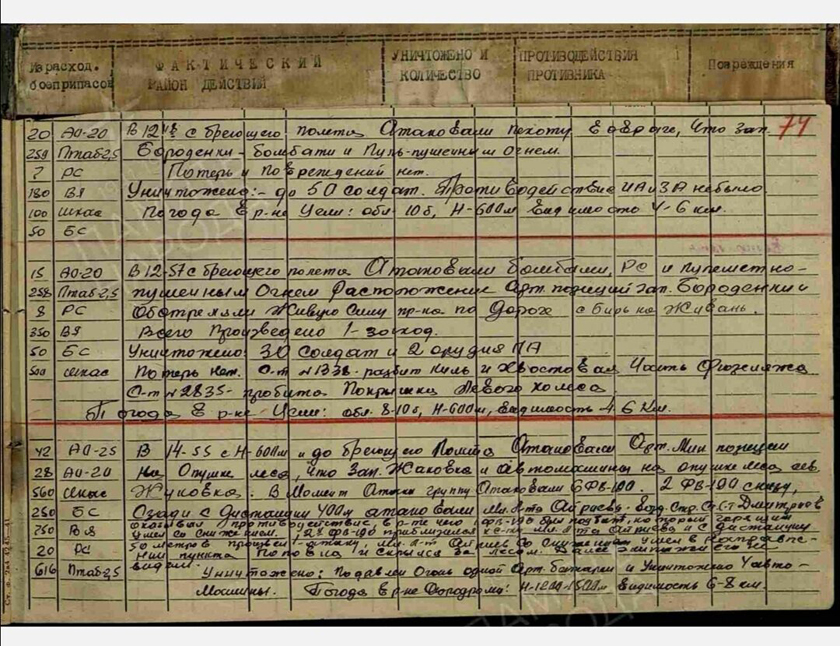 Израсход. боеприпасов
ФАКТИЧЕСКИЙ РАЙОН ДЕЙСТВИЙ
УНИЧТОЖЕНО И КОЛИЧЕСТВО
ПРОТИВОДЕЙСТВИЯ ПРОТИВНИКА
Повреждения
74
20 АО-20 В 12 с бреющего полета Атаковали пехоту в овраге, что зап.
259 Птаб-2,5 Бороденки - бомбами и Пуль-пушечным огнем.
7 РС Потерь и повреждений нет.
180 ВЯ Уничтожено: - до 50 солдат. Противодействие ИА и ЗА небыло
100 шкас Погода в р-не Цели: обл. 10б, Н-600м Видимость 4-6 км.
50 БС
15 АО-20 В 12-57 с бреющего полета Атаковали бомбами, РС и пулеметно-
258 Птаб-2,5 пушечным Огнем Расположение Арт. позиций зап. Бороденки и
8 РС Обстреляли Живую Силу пр-ка по Дороге с
350 ВЯ Всего Произведено 1-заход.
50 БС Уничтожено: 30 солдат и 2 орудия ПА
500 шкас Потерь Нет. С-т №1338-разбит Киль и Хвостовая Часть Фюзеляжа
С-т №2835-пробита Покрышка Левого колеса.
Погода в р-не Цели: обл. 8-10б, Н-600м, Видимость 4-6 Км.
42 АО-25 В 14-55 с Н-600м и до бреющего Полета Атаковали Арт. Мин позиции
28 АО-20 На Опушке леса, что Зап. Жаковка и автомашины на опушке леса сев.
560 шкас Жуковка. В Момент Атаки группу Атаковали 6 ФВ-190. 2 ФВ-190 снизу,
250 БС Сзади с Дистанции 400м атаковали мл. л-та Возд. Стр. Дмитриев
750 ВЯ оказывал противодействие, в р-те чего 1 ФВ-190 был подбит, который
20 РС 50 метров произвел атаку, мл. л-т со снижением ушел в направле-
616 Птаб-2,5 нии пункта и скрылся за лесом. Далее экипажи его не
видели.
Уничтожено: Подавлен Огонь одной Арт. батареи и Уничтожено 4 авто-
Машины. Погода в р-не Аэродрома: Н-1200-1500м Видимость 6-8 км.